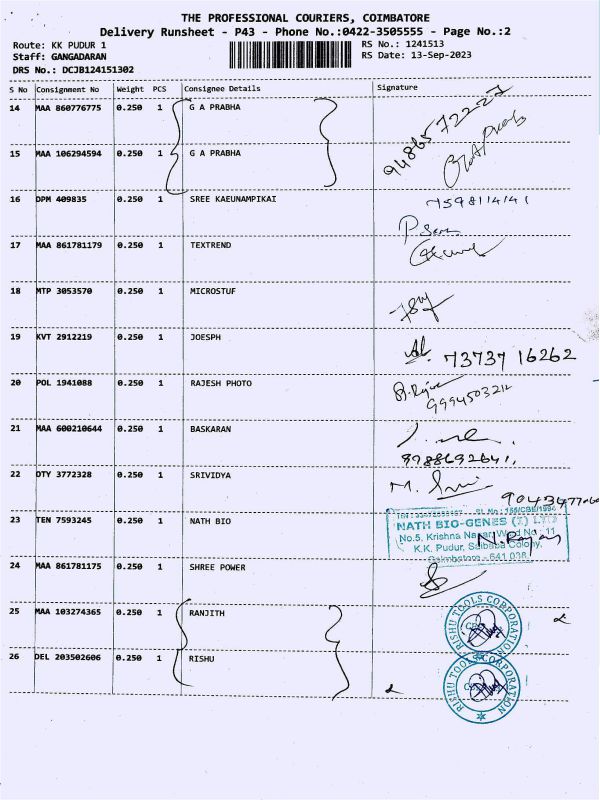 THE PROFESSIONAL COURIERS, COIMBATORE
Delivery Runsheet - P43 - Phone No.:0422-3505555 - Page No.:2
Route: KK PUDUR 1 RS No.: 1241513
Staff: GANGADARAN RS Date: 13-Sep-2023
DRS No.: DCJB124151302
S No Consignment No Weight PCS Consignee Details Signature
14 MAA 860776775 0.250 1 G A PRABHA
9486572227
15 MAA 106294594 0.250 1 G A PRABHA
16 DPM 409835 0.250 1 SREE KAEUNAMPIKAI 7598114141
17 MAA 861781179 0.250 1 TEXTREND
18 MTP 3053570 0.250 1 MICROSTUF
19 KVT 2912219 0.250 1 JOESPH 73737 16262
20 POL 1941088 0.250 1 RAJESH PHOTO
21 MAA 600210644 0.250 1 BASKARAN
9788692641,
22 DTY 3772328 0.250 1 SRIVIDYA
23 TEN 7593245 0.250 1 NATH BIO NATH BIO-GENES (I) LTD
No.5, Krishna Nagar, Ward No : 11
K.K. Pudur, Saibaba Colony,
Coimbatore - 641 038
24 MAA 861781175 0.250 1 SHREE POWER
25 MAA 103274365 0.250 1 RANJITH RISHU TOOLS CORPORATION
26 DEL 203502606 0.250 1 RISHU RISHU TOOLS CORPORATION